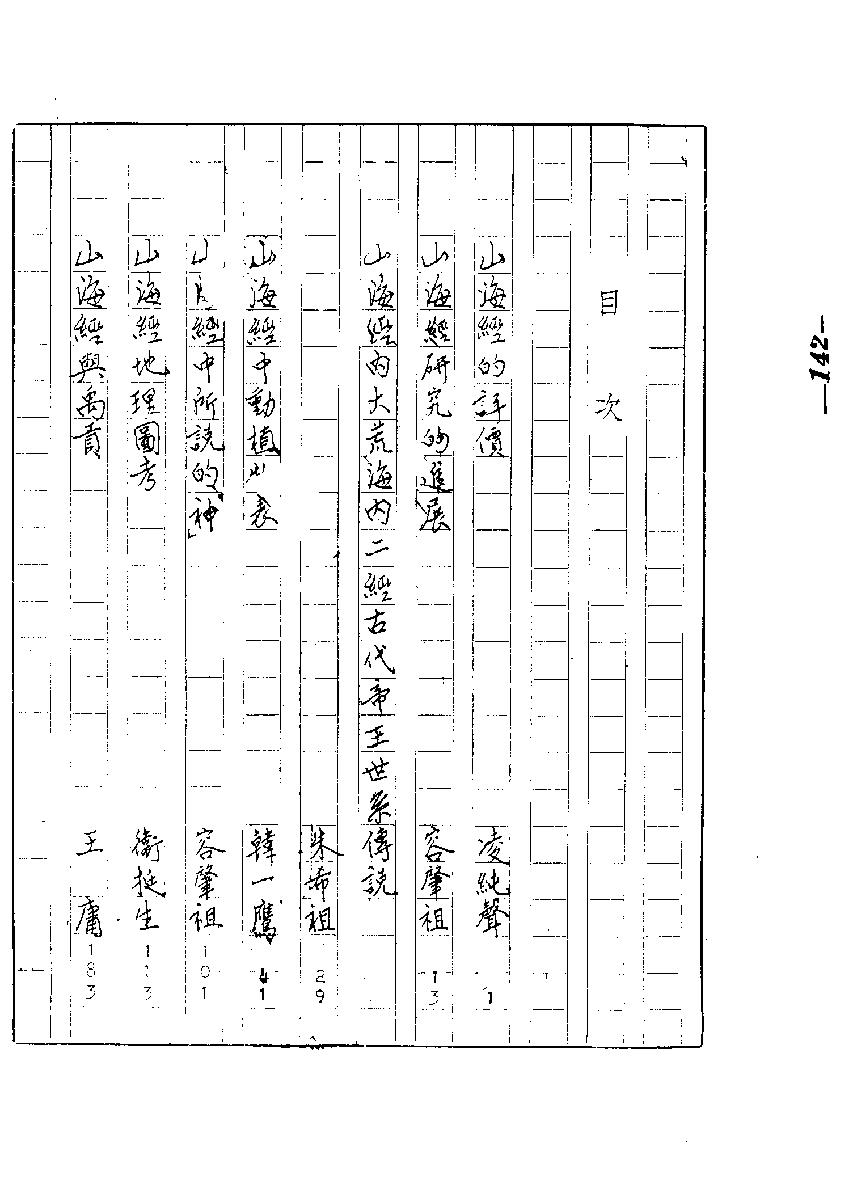 —142—
目次
山海經的評價 凌純聲 1
山海經研究的進展 容肇祖 13
山海經內大荒海內二經古代帝王世系傳說
朱希祖 29
山海經中動植表 韓一鷹 41
山經中所說的「神」 容肇祖 101
山海經地理圖考 衛挺生 113
山海經與禹貢 王庸 183